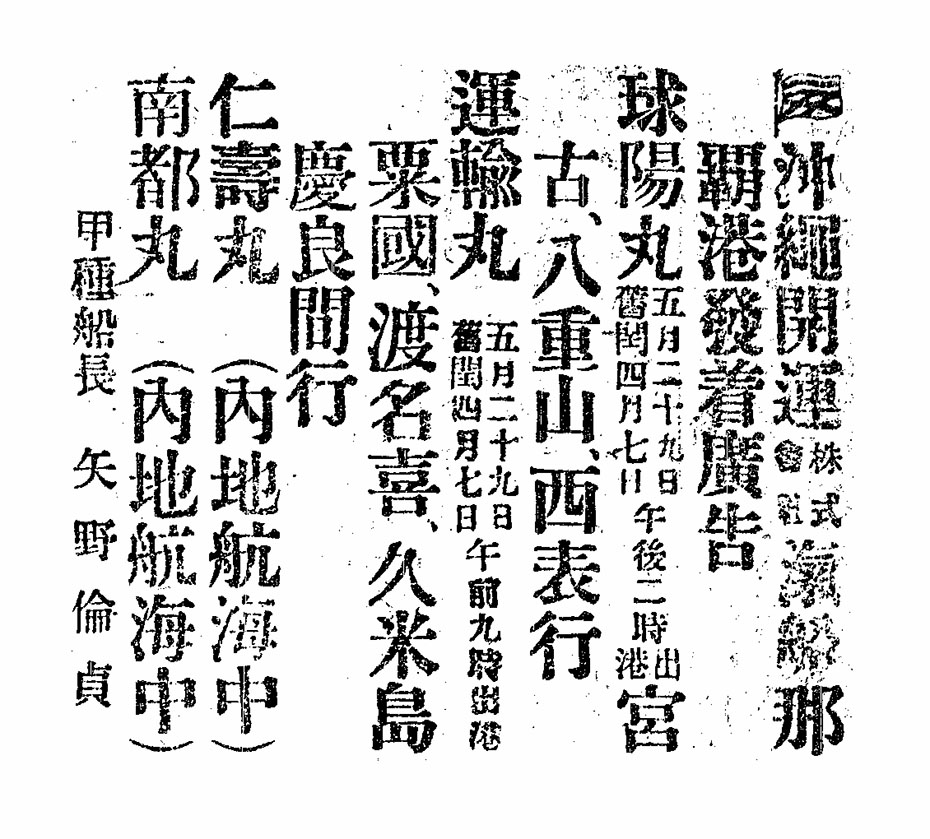 沖繩開運株式會社滊船那
覇港發着廣告
球陽丸 五月二十九日 舊閏四月七日 午後二時出港 宮
古、八重山、西表行
運輸丸 五月二十九日 舊閏四月七日 午前九時出港
粟國、渡名喜、久米島
慶良間行
仁壽丸 (內地航海中)
南都丸 (內地航海中)
甲種船長 矢野倫貞